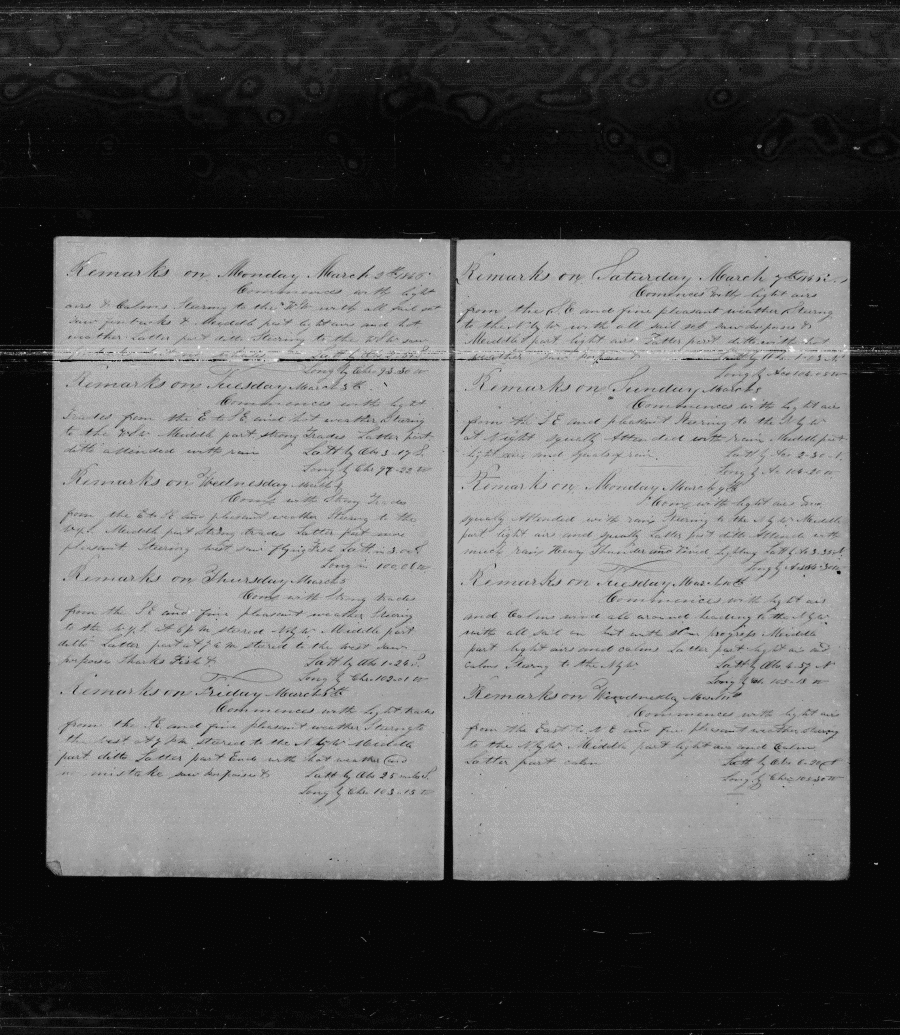 Remarks on Monday March 2th 1865
Commences with light
airs & Calms Steering to the W with all Sail set
saw & Middle part light airs and hot
weather Latter part ditto Steering to the WSW saw
Long by Chr 93-30 W
Remarks on Tuesday March 3th
Commences with light
Trades from the E to SE and hot weather Steering
to the WSW Middle part strong Trades Latter part
ditto attended with rain Latt by Obs 3-17 S
Long by Chr 97-22 W
Remarks on Wednesday March 4
Comes with Strong Trades
from the E to SE and pleasant weather Steering to the
W.y.S. Middle part strong trades Latter part more
pleasant Steering west saw flying Fish Latt in 3.00 S
Long in 100,08 W
Remarks on Thursday March 5
Coms with Strong trades
from the SE and fine pleasant weather Stearing
to the W.y.S. At 6 P M steered N by W Middle part
ditto Latter part at 7 A M stered to the west saw
porposes sharks Fish & Latt by Obs 1-28 S
Long by Chr 102-01 W
Remarks on Friday March 6th
Commences with light trades
from the SE and fine pleasant weather Steering to
the west at 7 P M stered to the N by W Middle
part ditto Latter part Ends with hot weather and
no mistake saw porposes & Latt by Obs 28 miles S
Long by Chr 103-15 W
Remarks on Saturday March 7th 1865
Comences with light airs
from the S.E and fine pleasant weather Sturing
to the N by W with all sail set saw porposes &
Middle part light airs Latter part ditto with hot
weather saw porposes & Latt by Obs 1-03 N
Long by
Remarks on Sunday March 8
Commences with light airs
from the SE and pleasant Steering to the N by W
at Night squaly Attended with rain Middle part
light airs and squaly rain Latt by 2-30 N
Long by 104-20 W
Remarks on Monday March 9th
Coms with light airs and
squaly Attended with rain Steering to the N by W Middle
part light airs and squaly Latter part ditto Attended with
much rain Heavy Thunder and Vivid Lighting Latt by
Long by
Remarks on Tuesday March 10th
Commences with light airs
and Calms wind all around heading to the N by W
with all sail on but with Slow progress Middle
part light airs and calms Latter part light airs and
calms Steering to the N by W Latt by Obs 4-57 N
Long by Chr 105-15 W
Remarks on Wendnesday March 11th
Commences with light airs
from the East to N E and fine plesant weather steering
to the N by W Middle part light airs and Calms
Latter part calm Latt by Obs
Long by Chr 105-30 W